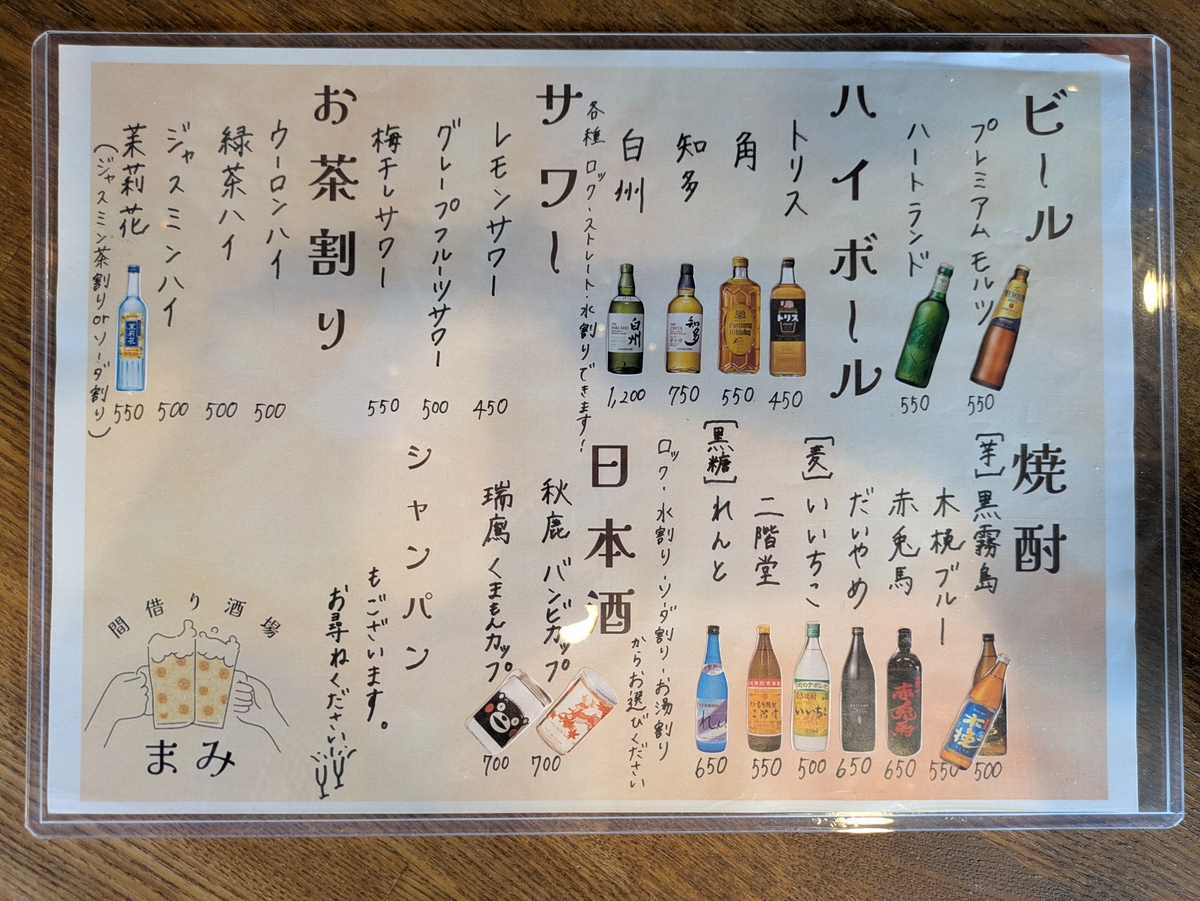 ビール
プレミアムモルツ
550
ハートランド
550
ハイボール
トリス
450
角
550
知多
750
白州
1,200
各種 ロック・ストレート・水割りできます!
サワー
レモンサワー
450
グレープフルーツサワー
500
梅干しサワー
550
お茶割り
ウーロンハイ
500
緑茶ハイ
500
ジャスミンハイ
500
茉莉花
550
(ジャスミン茶割りorソーダ割り)
焼酎
[芋]黒霧島
500
木挽ブルー
550
赤兎馬
650
だいやめ
650
[麦]いいちこ
500
二階堂
550
[黒糖]れんと
650
ロック・水割り・ソーダ割り・お湯割り
からお選びください
日本酒
秋鹿 バンビカップ
700
瑞鷹 くまもんカップ
700
シャンパン
もございます。
お尋ねください
間借り酒場
まみ
白州
知多
Suntory
Whisky
トリス
茉莉花
れんと
二階堂
いいちこ
赤兎馬
木挽